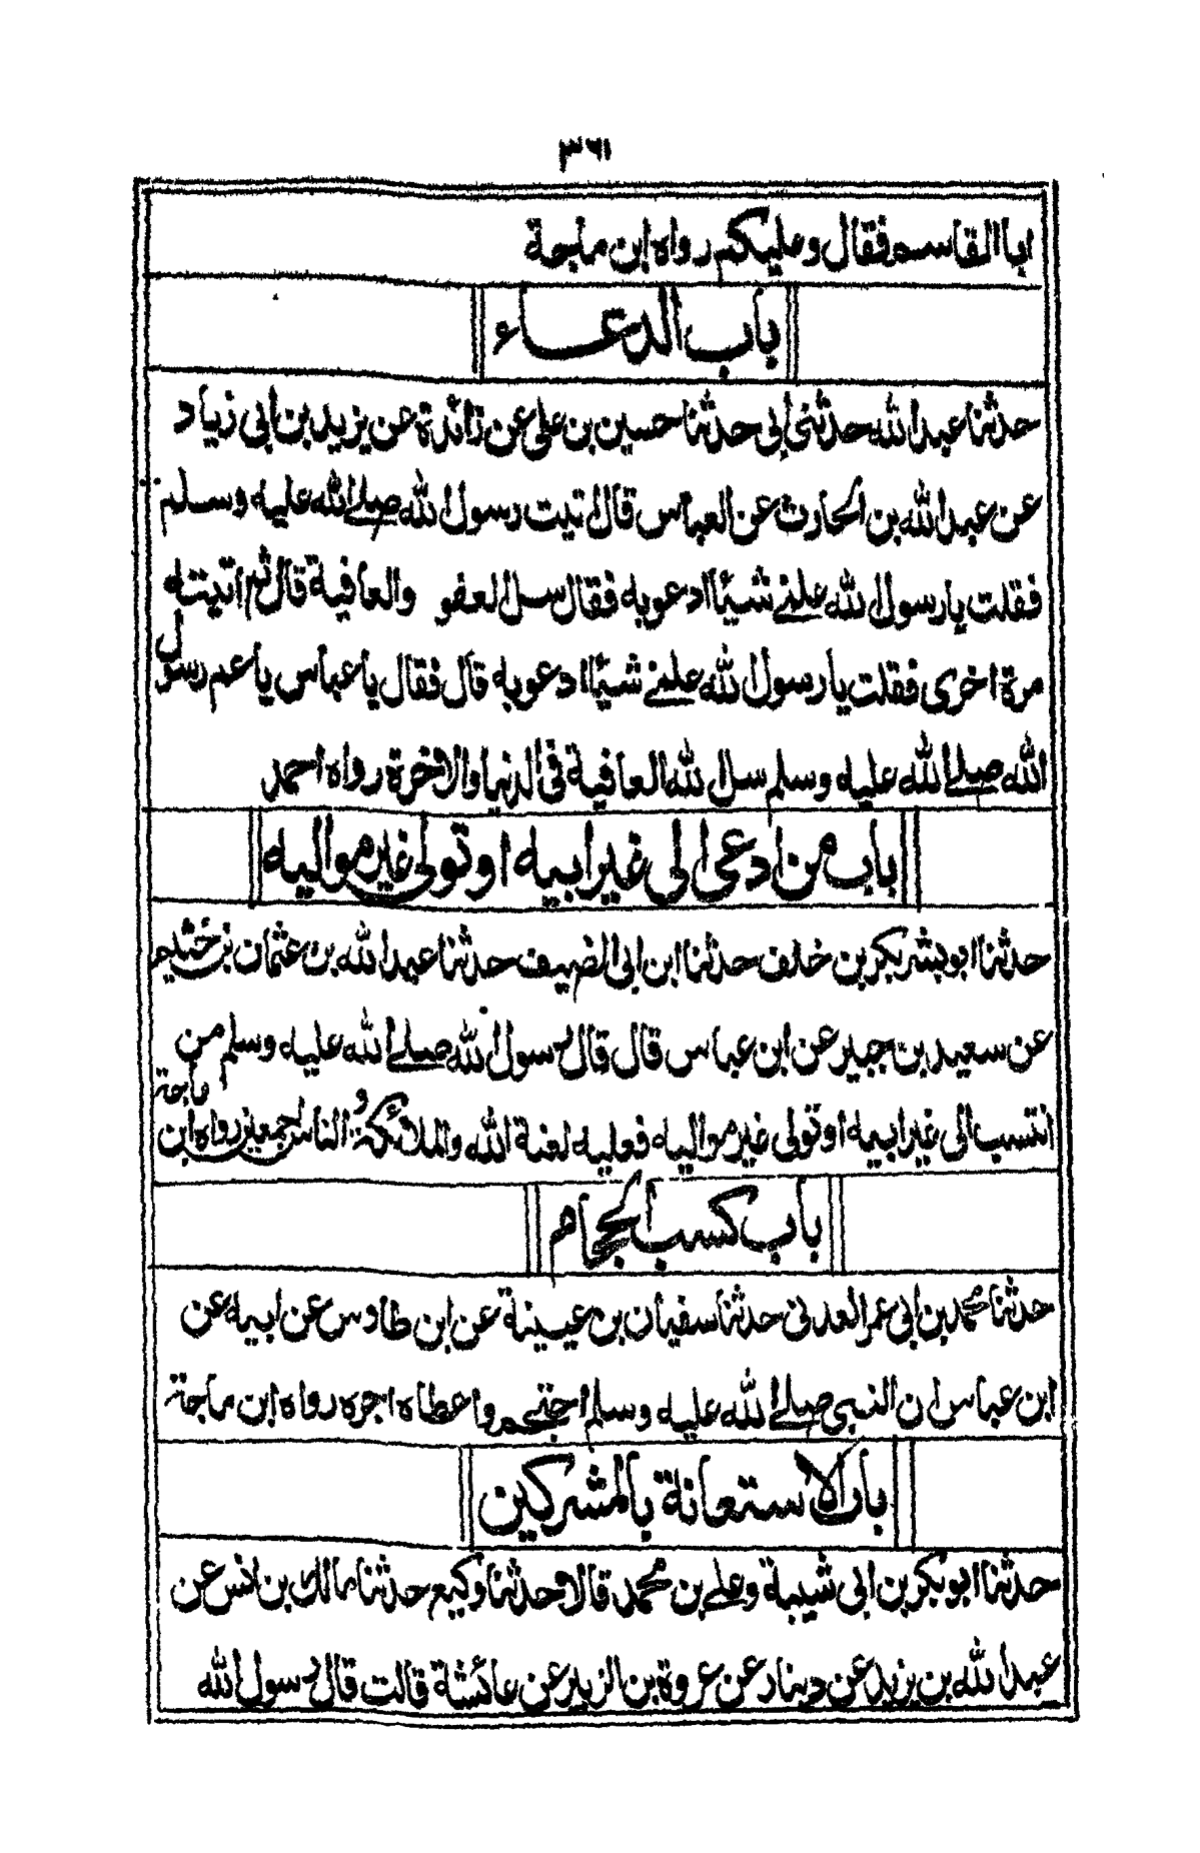 ٣٦١
ابا القاسم فقال وعليكم رواه ابن ماجة
باب الدعاء
حدثنا عبد الله حدثني أبي حدثنا حسين بن علي عن زائدة عن يزيد بن ابي زياد
عن عبد الله بن الحارث عن العباس قال اتيت رسول الله صلے الله عليه وسلم
فقلت يا رسول الله علمنے شيئا ادعو به فقال سل العفو والعافية قال ثم اتيته
مرة اخرى فقلت يا رسول الله علمنے شيئا ادعو به قال فقال يا عباس يا عم رسول
الله صلے الله عليه وسلم سل الله العافية في الدنيا والاخرة رواه احمد
باب من ادعى الى غير ابيه او تولى غير مواليه
حدثنا ابو بشر بكر بن خلف حدثنا ابن ابي الضيف حدثنا عبد الله بن عثمان بن خثيم
عن سعيد بن جبير عن ابن عباس قال قال رسول الله صلے الله عليه وسلم من
انتسب الى غير ابيه او تولى غير مواليه فعليه لعنة الله والملائكة والناس اجمعين رواه ابن ماجة
باب كسب الحجام
حدثنا محمد بن ابي عمر العدني حدثنا سفيان بن عيينة عن ابن طاوس عن ابيه عن
ابن عباس ان النبي صلے الله عليه وسلم احتجم واعطاه اجره رواه ابن ماجة
باب الاستعانة بالمشركين
حدثنا ابو بكر بن ابي شيبة وعلے بن محمد قالا حدثنا وكيع حدثنا مالك بن انس عن
عبد الله بن يزيد عن دينار عن عروة بن الزبير عن عائشة قالت قال رسول الله